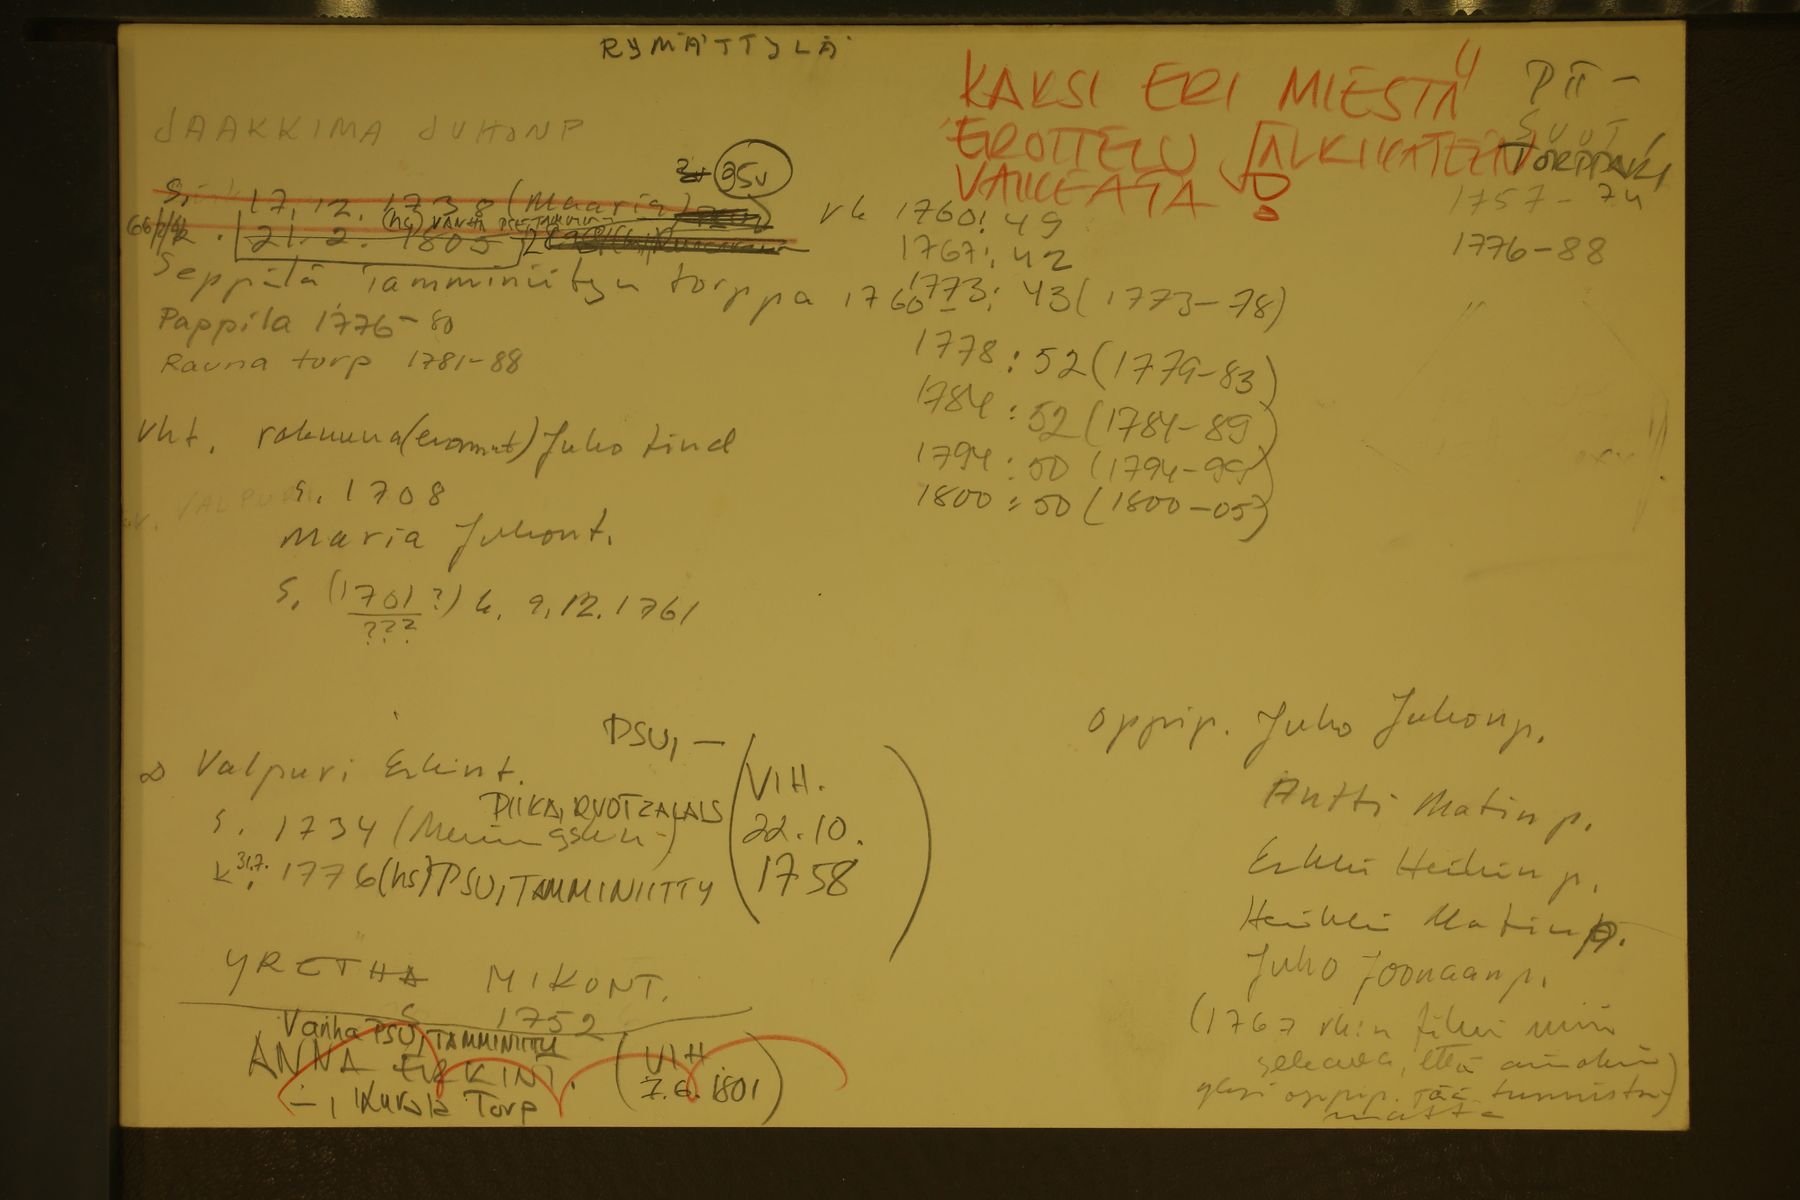 RYMÄTTYLÄ
KAKSI ERI MIESTÄ
EROTTELU JÄLKIKÄTEEN
VAIKEATA !
PII-
SUUT
TORPPARI
1757-74
1776-88
JAAKKIMA JUHONP
35v
S. 17.12.1738 (Maaria)
k. 21.2.1805
Seppälä Tamminiityn torppa 1760-
Pappila 1776-80
Rauna torp 1781-88
rk 1760: 49
1767: 42
1773: 43 (1773-78)
1778: 52 (1779-83)
1784: 52 (1784-89)
1794: 50 (1794-99)
1800: 50 (1800-05)
vht. rakuuna (eronnut) Juho Lind
s. 1708
v. VALPURI
Maria Juhont.
s. (1701?) k. 9.12.1761
???
PSU, -
∞ Valpuri Erkint.
PIIKA, RUOTZALAIS
s. 1734 (
k. 31.7. 1776 (hs) PSU, TAMMINIITTY
(VIH.
22.10.
1758)
YRETHA MIKONT.
S 1752
Vanha PSU, TAMMINIITTU
ANNA ERKINT. (VIH
7.6.1801)
-, Kurala Torp
oppip. Juho Juhonp.
Antti Matinp.
Erkki Heikinp.
Heikki Matinp.
Juho Joonaanp.
(1767 rk:n filmi niin
sekava, että
yksi oppip. jää tunnista)
matta